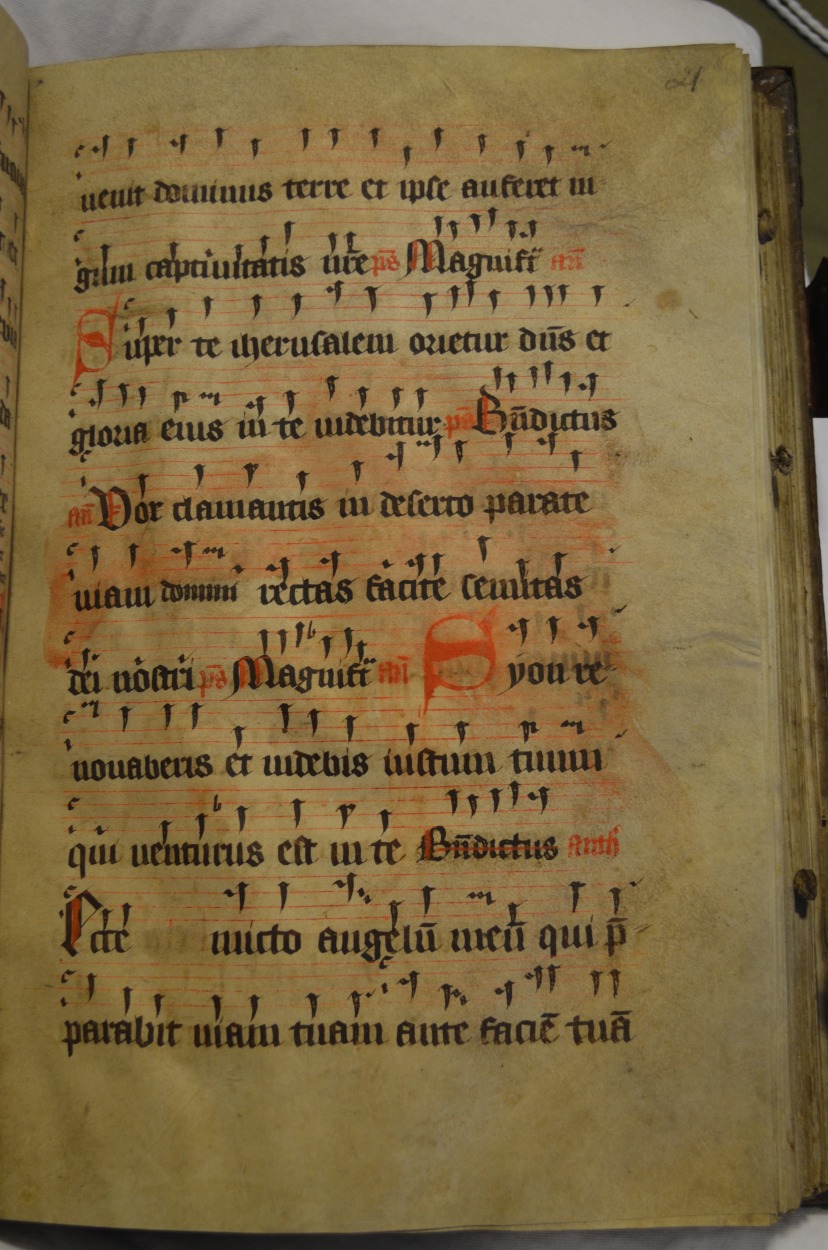 21
uenit dominus terre et ipse auferet iu
gum captiuitatis nr̄e ps̄ Magnifi̅ an̄
Super te iherusalem orietur dn̄s et
gloria eius in te uidebitur ps̄ Bn̄dictus
an̄ Vox clamantis in deserto parate
uiam domini rectas facite semitas
dei nostri ps̄ Magnifi̅ an̄ Syon re
nouaberis et uidebis iustum tuum
qui venturus est in te Bn̄dictus anth
Ecce mitto angelū meū qui p̄
parabit uiam tuam ante faciē tuā